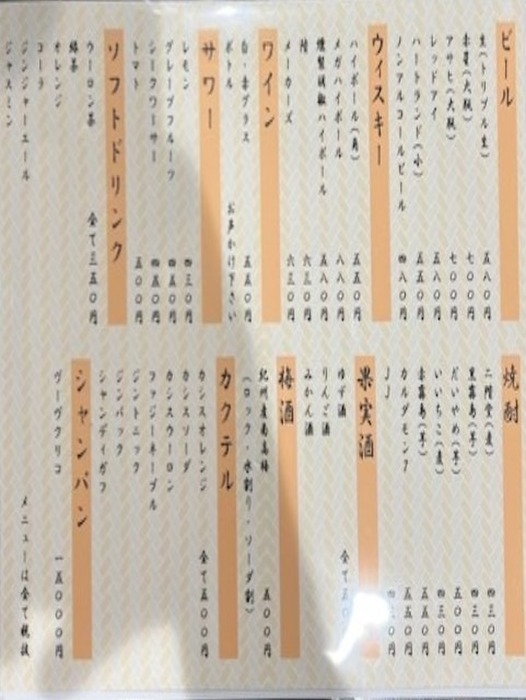 ビール
生(トリプル生) 五八〇円
赤星(大瓶) 七〇〇円
アサヒ(大瓶) 七〇〇円
レッドアイ 五八〇円
ハートランド(小) 五五〇円
ノンアルコールビール 四八〇円
ウィスキー
ハイボール(角) 五五〇円
メガハイボール 八八〇円
燻製胡椒ハイボール 五八〇円
陸 六三〇円
メーカーズ 六三〇円
ワイン
白・赤グラス 五五〇円
ボトル お声かけ下さい
サワー
レモン 四三〇円
グレープフルーツ 五五〇円
シークワーサー 四五〇円
トマト 五五〇円
ソフトドリンク
ウーロン茶 全て三五〇円
緑茶
オレンジ
コーラ
ジンジャーエール
ジャスミン
焼酎
二階堂(麦) 四三〇円
黒霧島(芋) 四三〇円
だいやめ(芋) 五〇〇円
いいちこ(麦) 四三〇円
赤霧島(芋) 五五〇円
カルダモン 五五〇円
JJ
果実酒
ゆず酒 全て五〇
りんご酒
みかん酒
梅酒
紀州産南高梅 五〇〇円
(ロック・水割り・ソーダ割)
カクテル
カシスオレンジ 全て五〇〇円
カシスソーダ
カシスウーロン
ファジーネーブル
ジントニック
ジンバック
シャンディガフ
シャンパン
ヴーヴクリコ 一五〇〇〇円
メニューは全て税抜